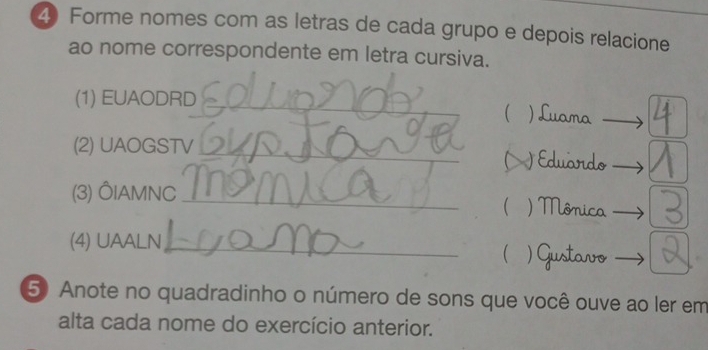 4 Forme nomes com as letras de cada grupo e depois relacione
ao nome correspondente em letra cursiva.
(1) EUAODRD Eduardo
( ) Luana → 4
(2) UAOGSTV
( ) Eduardo → 1
(3) ÔIAMNC Monica
( ) Mônica → 3
(4) UAALN Luana
( ) Gustavo → 2
5 Anote no quadradinho o número de sons que você ouve ao ler em
alta cada nome do exercício anterior.